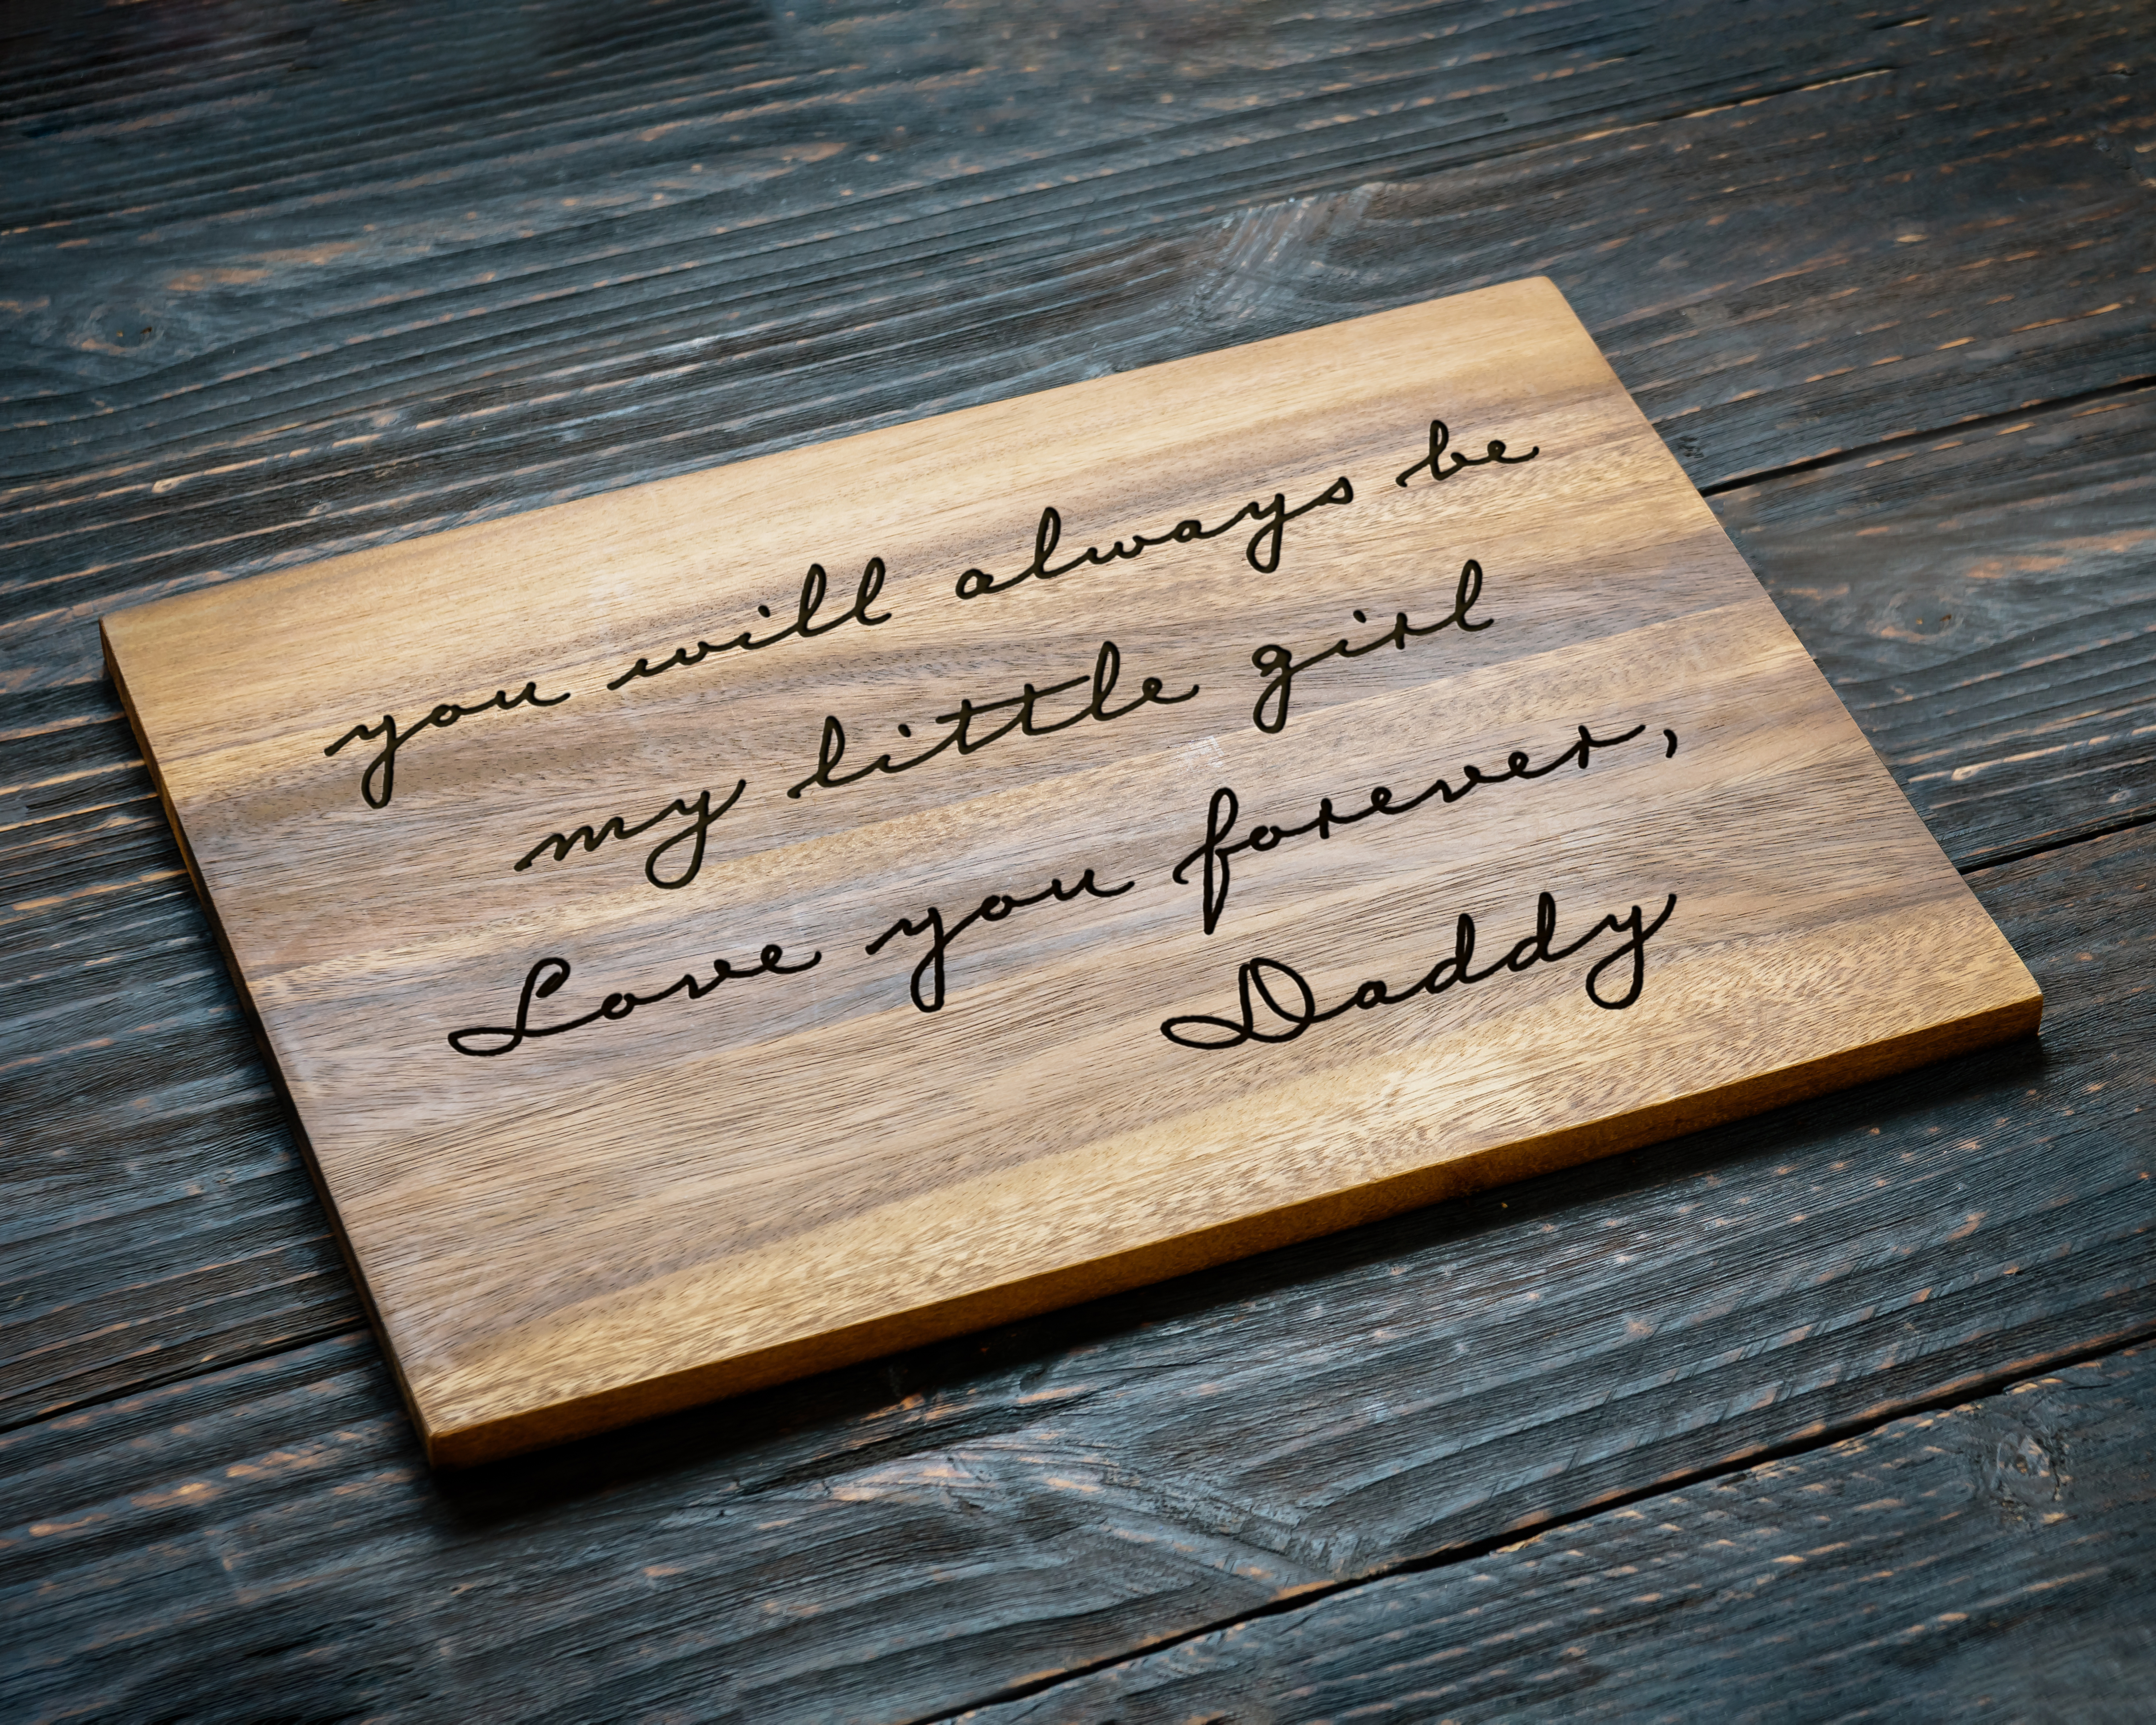 you will always be
my little girl
Love you forever,
Daddy